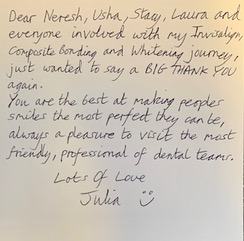 Dear Neresh, Usha, Stacy, Laura and
everyone involved with my Invisalign,
Composite Bonding and Whitening journey,
just wanted to say a BIG THANK YOU
again.
You are the best at making peoples
smiles the most perfect they can be,
always a pleasure to visit the most
friendly, professional of dental teams.
Lots Of Love
Julia